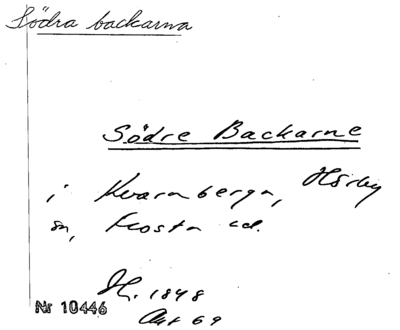 Södra backarna
Södre Backarne
i Kvarnberga, Hörby
sn, Frosta hd.
H. 1848
Akt 69
Nr 10446